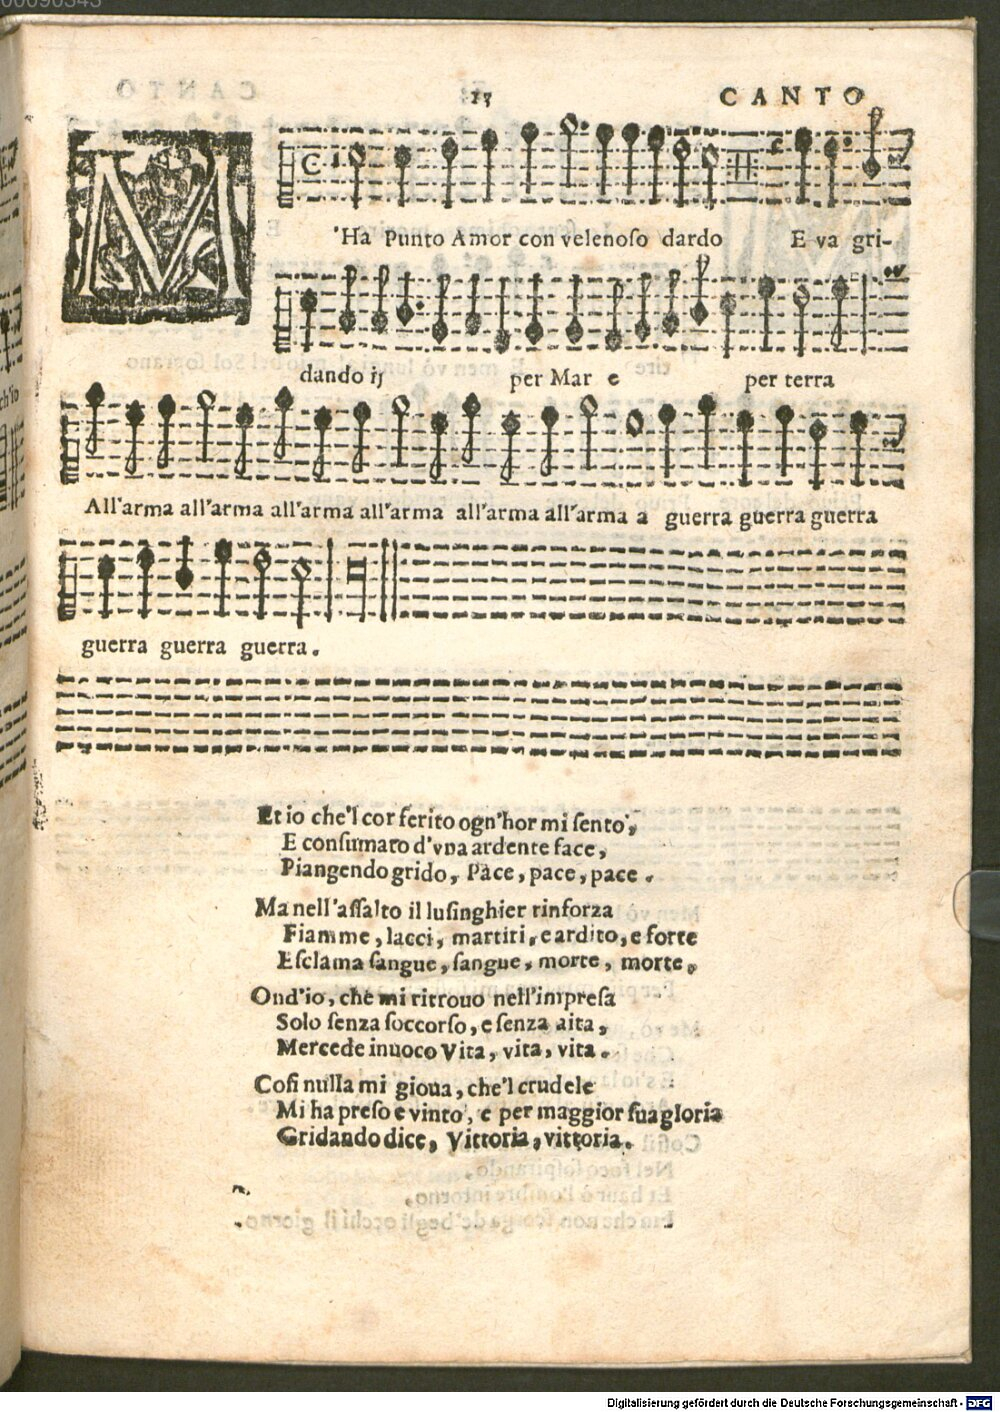 17
CANTO
M'Ha punto Amor con velenoſo dardo E va gri-
dando ij per Mar e per terra
All'arma all'arma all'arma all'arma all'arma all'arma a guerra guerra guerra
guerra guerra guerra.
Et io che'l cor ferito ogn'hor mi ſento,
E conſumato d'vna ardente face,
Piangendo grido, Pace, pace, pace.
Ma nell'aſſalto il luſinghier rinforza
Fiamme, lacci, martiri, e ardito, e forte
Eſclama ſangue, ſangue, morte, morte,
Ond'io, che mi ritrouo nell'impreſa
Solo ſenza ſoccorſo, e ſenza aita,
Mercede inuoco Vita, vita, vita.
Coſi nulla mi gioua, che'l crudele
Mi ha preſo e vinto, e per maggior ſua gloria
Gridando dice, Vittoria, vittoria.
Digitalisierung gefördert durch die Deutsche Forschungsgemeinschaft - DFG